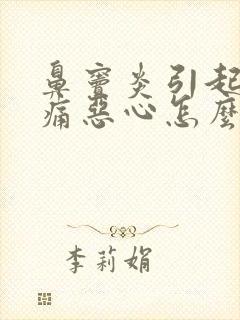 鼻竇炎引起
痛惡心怎麼
李莉娟